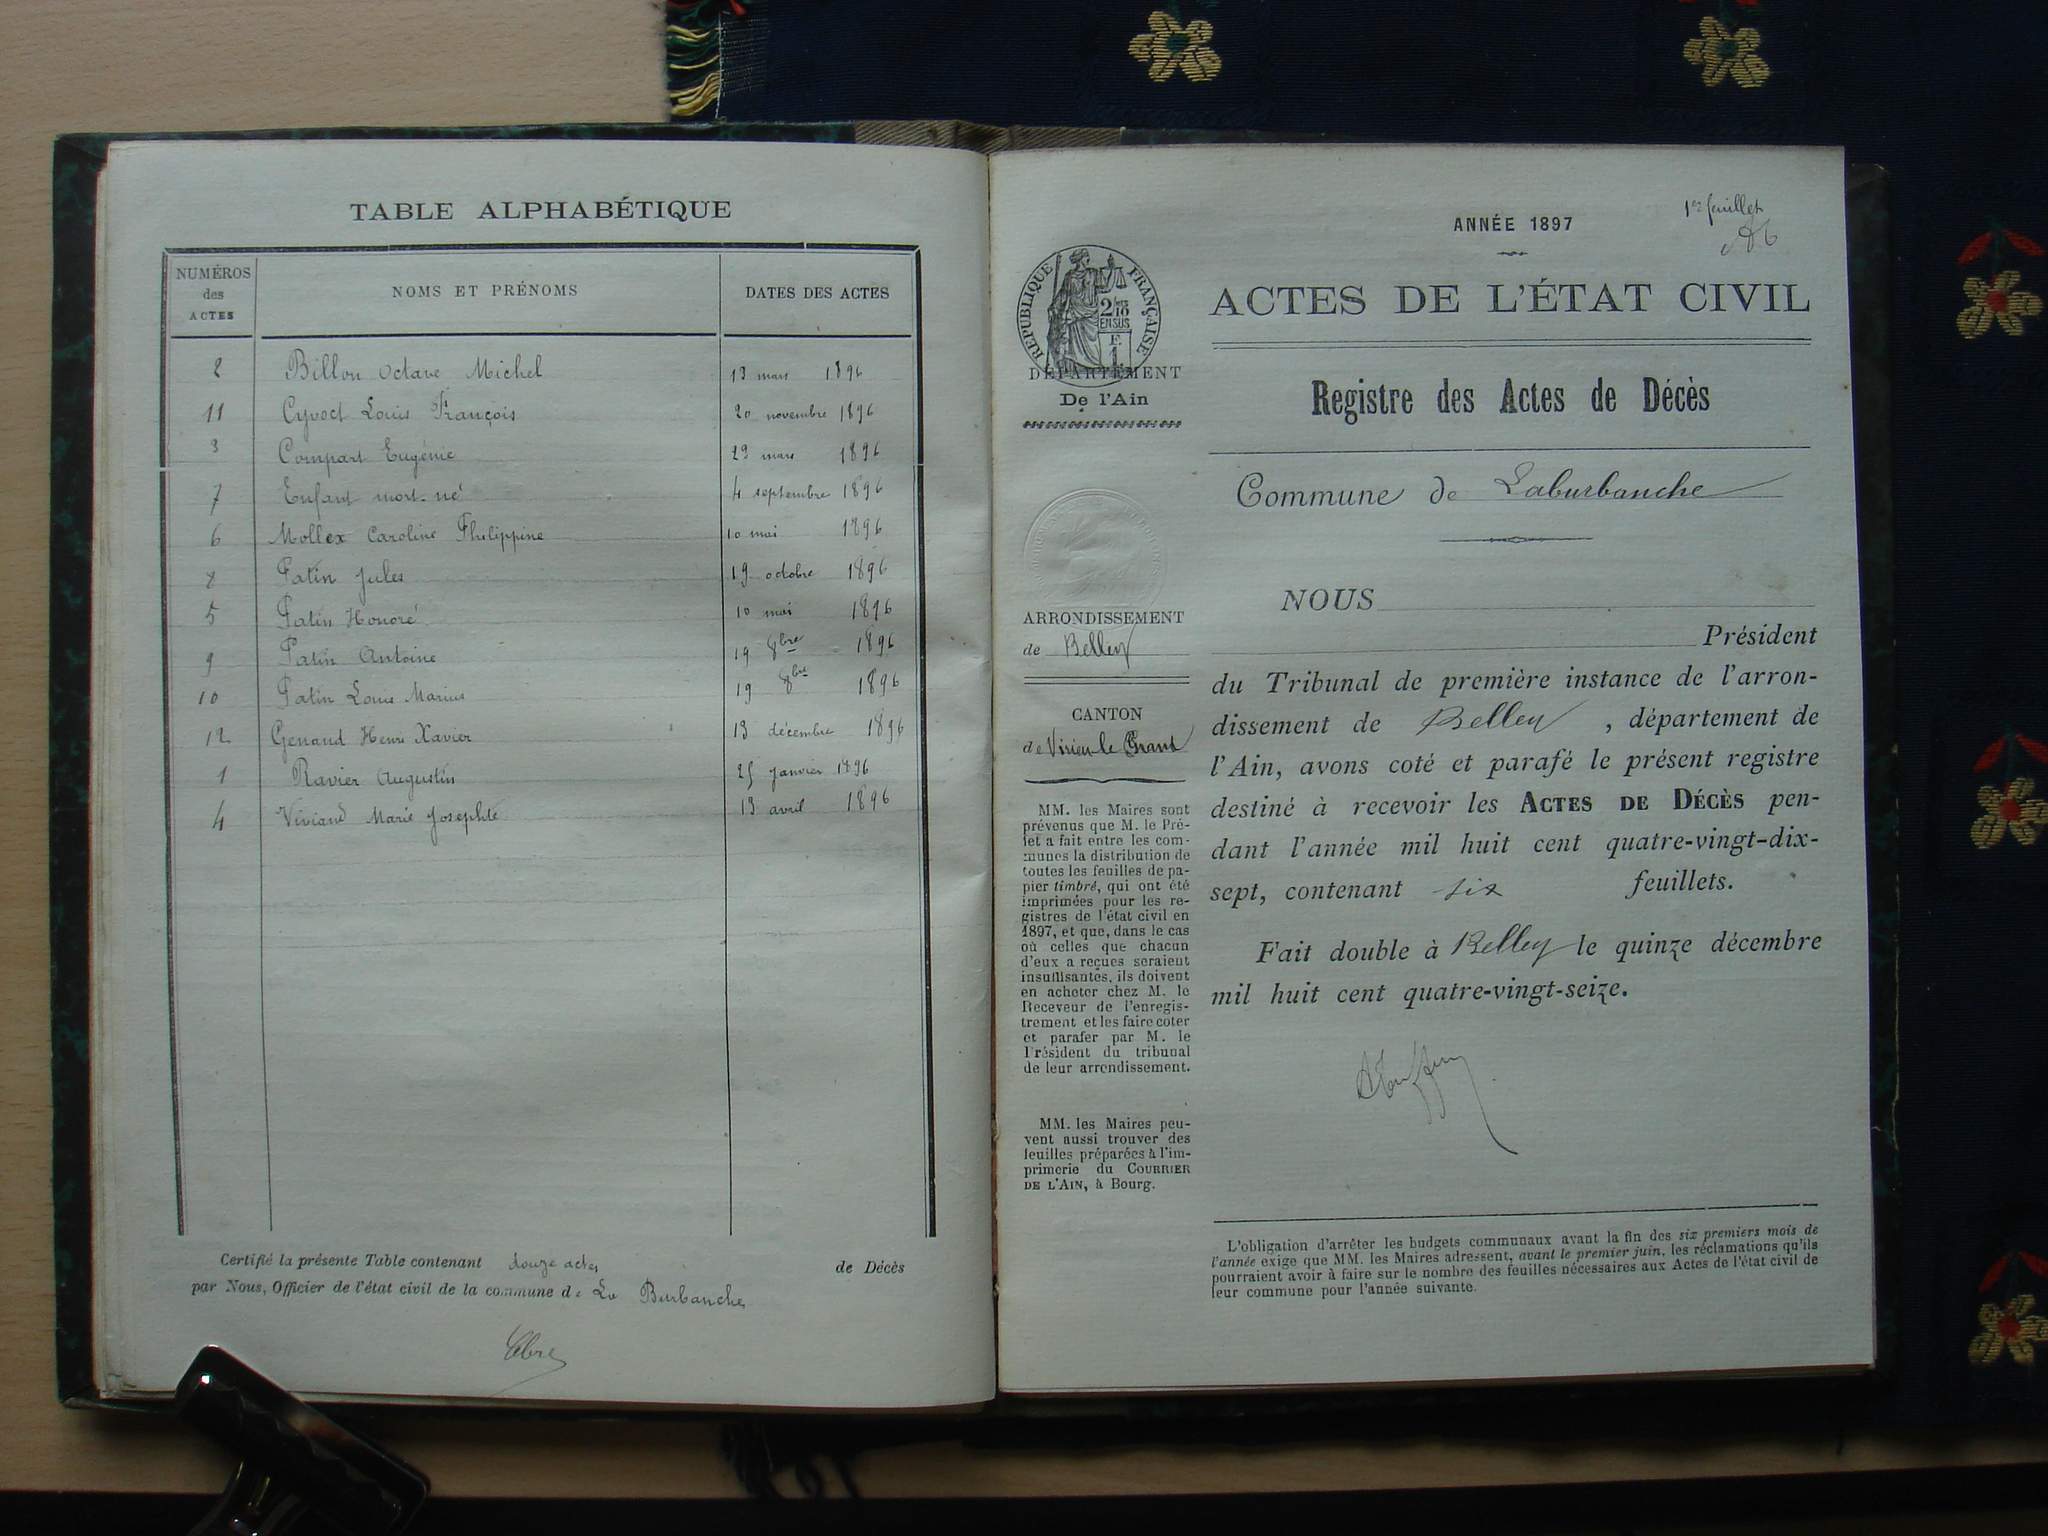 TABLE ALPHABÉTIQUE
NUMÉROS des ACTES
NOMS ET PRÉNOMS
DATES DES ACTES
2 Billon Octave Michel 13 mars 1896
11 Cyvoct Louis François 20 novembre 1896
3 Compart Eugénie 29 mars 1896
7 Enfant mort-né 4 septembre 1896
6 Mollex Caroline Philippine 10 mai 1896
8 Patin Jules 19 octobre 1896
5 Patin Honoré 10 mai 1896
9 Patin Antoine 19 8bre 1896
10 Patin Louis Marius 19 8bre 1896
12 Genand Henri Xavier 13 décembre 1896
1 Ravier Augustin 25 janvier 1896
4 Viviand Marie Josephte 13 avril 1896
Certifié la présente Table contenant douze actes de Décès
par Nous, Officier de l'état civil de la commune de La Burbanche
1er feuillet
ANNÉE 1897
ACTES DE L'ÉTAT CIVIL
RÉPUBLIQUE FRANÇAISE
2/10
EN SUS
F.
1
DÉPARTEMENT
De l'Ain
Registre des Actes de Décès
Commune de Laburbanche
ARRONDISSEMENT
de Belley
CANTON
de Virieu le Grand
MM. les Maires sont
prévenus que M. le Pré-
fet a fait entre les com-
munes la distribution de
toutes les feuilles de pa-
pier timbré, qui ont été
imprimées pour les re-
gistres de l'état civil en
1897, et que, dans le cas
où celles que chacun
d'eux a reçues seraient
insuffisantes, ils doivent
en acheter chez M. le
Receveur de l'enregis-
trement et les faire coter
et parafer par M. le
Président du tribunal
de leur arrondissement.
MM. les Maires peu-
vent aussi trouver des
feuilles préparées à l'im-
primerie du COURRIER
DE L'AIN, à Bourg.
NOUS
Président
du Tribunal de première instance de l'arron-
dissement de Belley, département de
l'Ain, avons coté et parafé le présent registre
destiné à recevoir les ACTES DE DÉCÈS pen-
dant l'année mil huit cent quatre-vingt-dix-
sept, contenant six feuillets.
Fait double à Belley le quinze décembre
mil huit cent quatre-vingt-seize.
L'obligation d'arrêter les budgets communaux avant la fin des six premiers mois de
l'année exige que MM. les Maires adressent, avant le premier juin, les réclamations qu'ils
pourraient avoir à faire sur le nombre des feuilles nécessaires aux Actes de l'état civil de
leur commune pour l'année suivante.